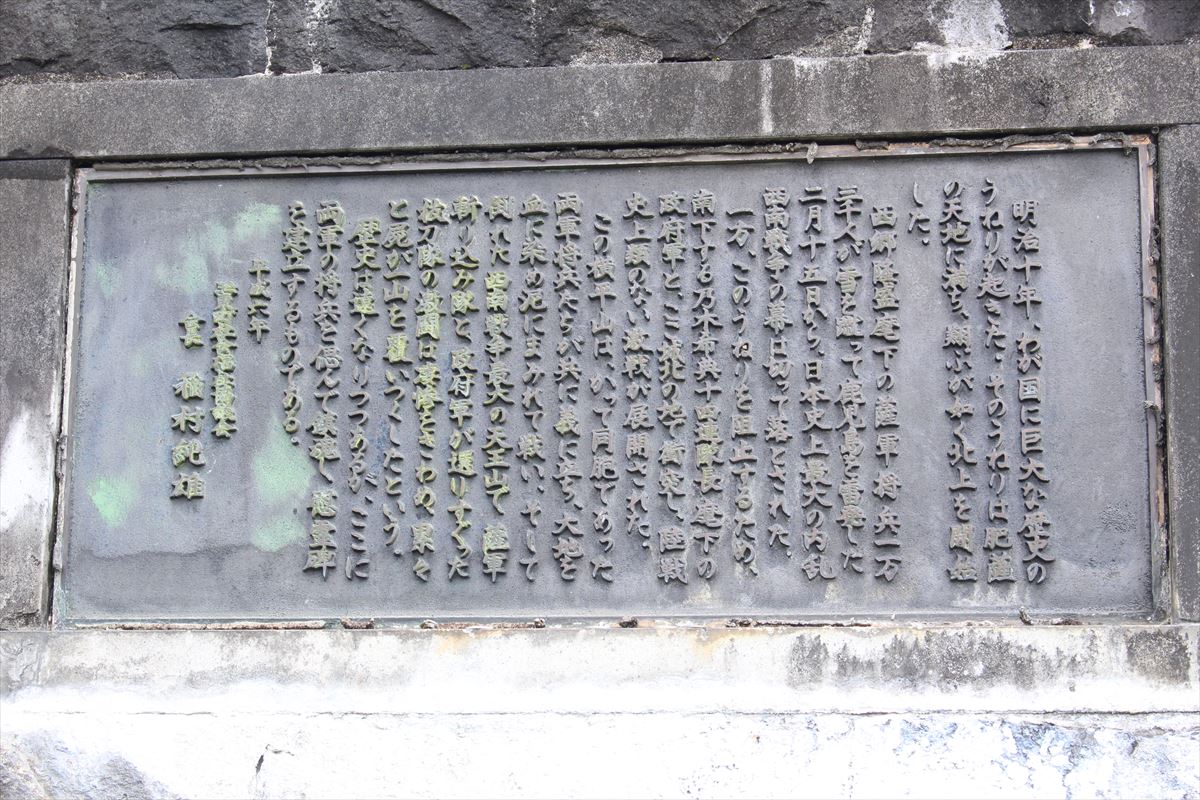 明治十年、わが国に巨大な歴史の
うねりが起きた。そのうねりは肥薩
の天地に満ち、翔ぶが如く北上を開始
した。
西郷隆盛麾下の薩軍将兵一万
三千人が雪を蹴って鹿児島を出発した
二月十五日から、日本史上最大の内乱
西南戦争の幕は切って落とされた。
一方、このうねりを阻止するため、
南下する乃木希典十四連隊長麾下の
政府軍と、ここ玉北の地で衝突し、陸戦
史上類のない激戦が展開された。
この横平山は、かって同胞であった
両軍将兵たちが共に義に立ち、大地を
血に染め泥にまみれて戦い、そして
倒れた西南戦争最大の天王山で、薩軍
斬り込み隊と、政府軍が選りすぐった
抜刀隊の激闘は凄惨をきわめ、累々
と屍が一山を覆いつくしたという。
歴史は遠くなりつつあるが、ここに
両軍の将兵を偲んで慰霊し、慰霊碑
を建立するものである。
平成六年
書 種村純雄